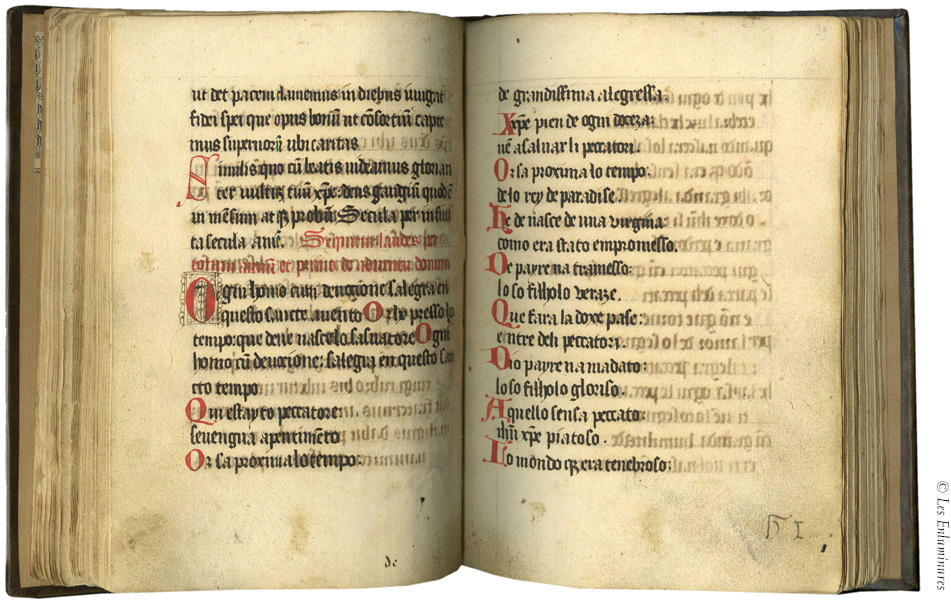 ut det pacem
fidei spei que opus bonũ ut
mus superiorũ ubi caritas
Similis quo cũ beatis videamus glorian
ter vultũ tuũ xp̃e deus gaudiũ quod ẽ
in mẽsum at qz probũ Secula per infini
ta secula amẽ. Sequntur laudes per
totum et primo de adventu domini
Ogni homo cum devocione salegra en
questo sancto avento Or he presso lo
tempo: que deve nascere lo salvatore Ogni
homo cũ devocione: salegra en questo san
cto tempo
Qui estayto peccatore:
sevengna apentimẽto
Or sa proxima lo tempo:
de
de grandissima alegressa.
Xxp̃e pien de ogni doceza:
nẽ a salvar li peccatori.
Or sa proxima lo tempo:
delo rey de paradise.
He de nasce de una virgina:
como era stato empromesso.
De payre na tramesso:
lo so filholo veraxe.
Que fara la doxe pase:
entre deli peccatori.
Dio payre na madato:
lo so filholo glorioso.
Aquello sensa peccato:
ihũ xp̃e piatoso.
Lo mondo qz era tenebroso:
h I
© Les Enluminures